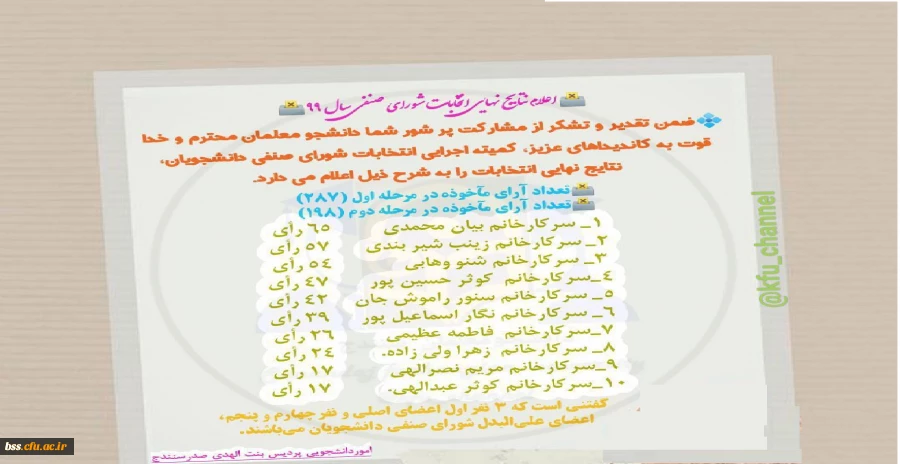 اعلام نتایج نهایی انتخابات شورای صنفی سال ۹۹
ضمن تقدیر و تشکر از مشارکت پر شور شما دانشجو معلمان محترم و خدا
قوت به کاندیداهای عزیز، کمیته اجرایی انتخابات شورای صنفی دانشجویان،
نتایج نهایی انتخابات را به شرح ذیل اعلام می دارد.
تعداد آرای مآخوذه در مرحله اول (۲۸۷)
تعداد آرای مآخوذه در مرحله دوم (۱۹۸)
۱_ سرکارخانم بیان محمدی ۶۵ رأی
۲_ سرکارخانم زینب شیر بندی ۵۷ رأی
۳_ سرکارخانم شنو وهابی ۵۴ رأی
۴_سرکارخانم کوثر حسین پور ۴۷ رأی
۵_ سرکارخانم سنور راموش جان ۴۲ رأی
۶_ سرکارخانم نگار اسماعیل پور ۳۹ رأی
۷_سرکارخانم فاطمه عظیمی ۲۶ رأی
۸_ سرکارخانم زهرا ولی زاده. ۲۴ رأی
۹_سرکارخانم مریم نصرالهی ۱۷ رأی
۱۰_سرکارخانم کوثر عبدالهی. ۱۷ رأی
گفتنی است که ۳ نفر اول اعضای اصلی و نفر چهارم و پنجم،
اعضای علی‌البدل شورای صنفی دانشجویان می‌باشند.
اموردانشجویی پردیس بنت الهدی صدرسنندج
@kfu_channel
bss.cfu.ac.ir